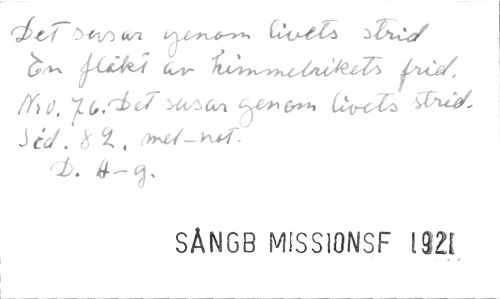 Det susar genom livets strid
En fläkt av himmelrikets frid.
Nro. 76. Det susar genom livets strid.
Sid. 82. mel-not.
D. H-g.
SÅNGB MISSIONSF 1921